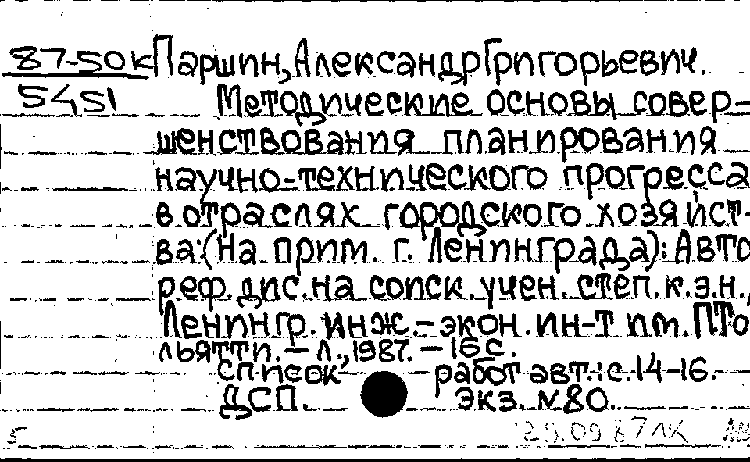 87-50к Паршин, Александр Григорьевич.
5451 Методические основы совер-
шенствования планирования
научно-технического прогресса
в отраслях городского хозяйст-
ва: (На прим. г. Ленинграда): Авто
реф. дис. на соиск. учен. степ. к.э.н.,
Ленингр. инж.-экон. ин-т им. П.То
льятти. - Л., 1987. - 16 с.
Список работ авт.: с. 14-16.
ДСП. Экз. №80.
5 29.09 87 ЛК